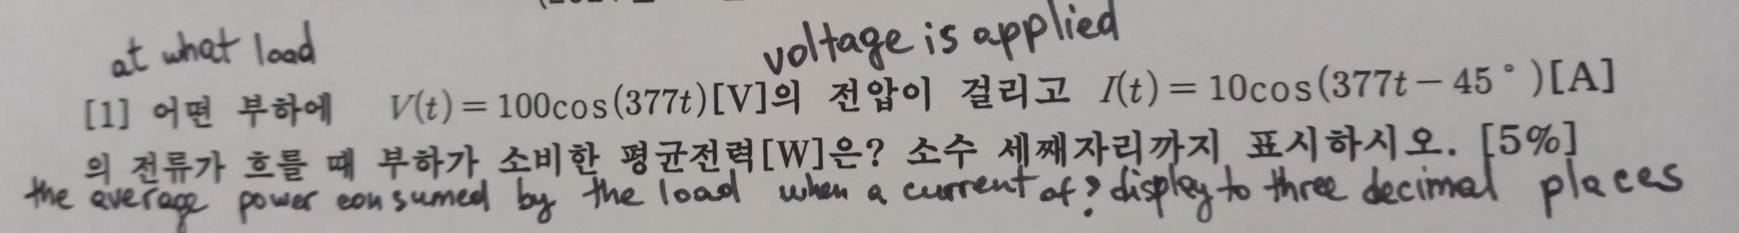 at what load voltage is applied
[1] 어떤 부하에 V(t) = 100cos(377t)[V]의 전압이 걸리고 I(t) = 10cos(377t - 45°)[A]
의 전류가 흐를 때 부하가 소비한 평균전력[W]은? 소수 세째자리까지 표시하시오. [5%]
the average power consumed by the load when a current of? display to three decimal places